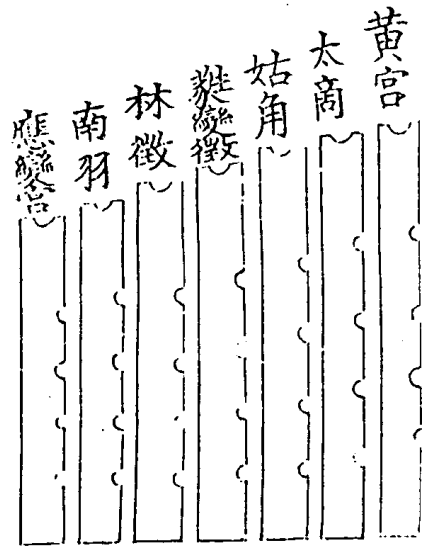 黄宮
太商
姑角
蕤變徵
林徵
南羽
應變宮